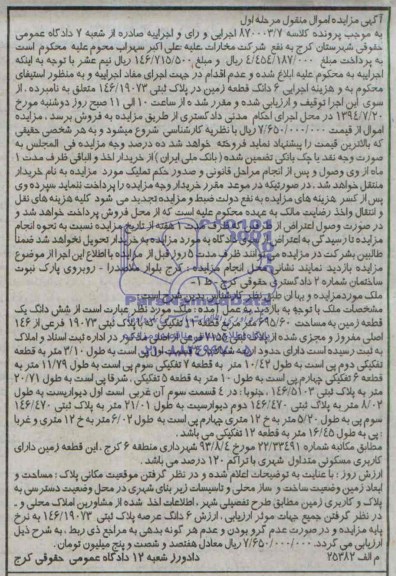 آگهی مزایده اموال منقول مرحله اول
به موجب پرونده کلاسه ۸۷۰۰۰۳/۷ اجرایی و رای و اجراییه صادره از شعبه ۷ دادگاه عمومی
حقوقی شهرستان کرج به نفع شرکت مخابرات علیه علی اکبر سهراب محوم علیه محکوم است
به پرداخت مبلغ ۴/۴۵۴/۱۸۷/۰۰۰ ریال و مبلغ ۱۴۶/۷۱۵/۵۰۰ ریال نیم عشر با توجه به اینکه
اجراییه به محکوم علیه ابلاغ شده و عدم اقدام در جهت اجرای مفاد اجراییه و به منظور استیفای
محکوم به و هزینه اجرایی ۶ دانگ قطعه زمین در پلاک ثبتی ۱۴۶/۱۹۰۷۳ متعلق به نامبرده، از
سوی این اجرا توقیف و ارزیابی شده و مقرر شده از ساعت ۱۰ الی ۱۱ صبح روز دوشنبه مورخ
۱۳۹۴/۷/۲۰ در محل اجرای احکام مدنی دادگستری از طریق مزایده به فروش برسد. مزایده
اموال از قیمت ۷/۶۵۰/۰۰۰/۰۰۰ ریال با نظریه کارشناسی شروع میشود و به هر شخص حقیقی
که بالاترین قیمت را پیشنهاد نماید فروخته خواهد شد ده درصد وجه مزایده فی المجلس به
صورت وجه نقد یا چک بانکی تضمین شده (بانک ملی ایران) از خریدار اخذ و الباقی ظرف مدت ۱
ماه از وی وصول و پس از انجام مراحل قانونی و صدور حکم تملیک مورد مزایده به نام خریدار
منتقل خواهد شد. در صورتیکه در موعد مقرر خریدار وجه مزایده را پرداخت ننماید سپرده وی
پس از کسر هزینه های مزایده به نفع دولت ضبط و مزایده تجدید می شود کلیه هزینه های نقل
و انتقال واخذ رضایت مالک به عهده محکوم علیه است که از محل فروش پرداخت خواهد شد و
در صورت وصول اعتراض از هفته از تاریخ مزایده نسبت به نحوه انجام
مزایده تا رسیدگی به اعتراض مورد مزایده به خریدار تحویل نخواهد شد ضمناً
طالبین بشرکت در مزایده می توانند ظرف مدت ۵ روز قبل از مزایده با اطلاع این اجرا از موضوع
مزایده بازدید نمایند نشانی محل انجام مزایده: کرج بلوار ملاصدرا - روبروی پارک نبوت
ساختمان شماره ۲ دادگستری حقوقی کرج ط ۱
ملک موردمزایده و بهاان طبق نظر کارشناس بدین شرح است:
مشخصات ملک با توجه به بازدید به عمل آمده: ملک مورد نظر عبارت است از شش دانگ یک
قطعه زمین به مساحت ۶۹۵/۶۰ متر مربع قطعه ۱۲ تفکیکی که با پلاک ثبتی ۱۹۰۷۳ فرعی از ۱۴۶
اصلی مفروز و مجزی شده از پلاک در اداره ثبت اسناد و املاک
به طول ۳/۱۰ متر به قطعه
تفکیکی دوم پی است به طول ۱۰/۴۳ متر به قطعه ۷ تفکیکی سوم پی است به طول ۱۱/۷۹ متر به
قطعه ۶ تفکیکی چهارم پی است به طول ۱۰ متر به قطعه ۵ تفکیکی، شرقا پی است به طول ۲۰/۷۱
متر به پلاک ثبتی ۱۴۶/۵۱۰۳، جنوبا: در ۴ قسمت سوم آن غربی است اول دیواریست به طول
۸/۰۲ متر به پلاک ثبتی ۱۴۶/۴۷۰ دوم دیواریست به طول ۲۱/۰۱ متر به پلاک ثبتی ۱۴۶/۴۷۰
سوم پی به طول ۵/۲۰ متر به خ ۱۲ متری چهارم پی است به طول ۶/۰۲ متر به خ ۱۲ متری و غربا
: پی به طول ۱۶/۴۵ متر به قطعه ۱۳ تفکیکی می باشد.
مطابق مکاتبه شماره ۲۲/۳۳۴۹۱ مورخ ۹۳/۸/۴ شهرداری منطقه ۶ کرج، این قطعه زمین دارای
کاربری مسکونی متداول شهری با تراکم ۱۲۰ درصد می باشد.
ارزش روز: با عنایت به توضیحات اعلام شده و در نظر گرفتن موقعیت مکانی پلاک: مساحت و
ابعاد زمین وضعیت ساخت و ساز محلی و تاسیسات زیر بنای شهری در محل وضعیت دسترسی به
پلاک و کاربری زمین مطابق طرح تفصیلی شهر، اطلاعات اخذ شده از مشاورین املاک محلی و -
در نظر گرفتن جمیع جهات مورد ارزیابی، ارزش ۶ دانگ عرصه پلاک ثبتی ۱۴۶/۱۹۰۷۳ به نرخ
پایه مزایده و در صورت عدم گرو بودن و عدم هر گونه بدهی به مراجع ذی ربط، به شرح ذیل
ارزیابی می گردد. ۷/۶۵۰/۰۰۰/۰۰۰ ریال معادل هفتصد و شصت و پنج میلیون تومان.
م الف ۲۵۳۸۲ دادورز شعبه ۱۲ دادگاه عمومی حقوقی کرج